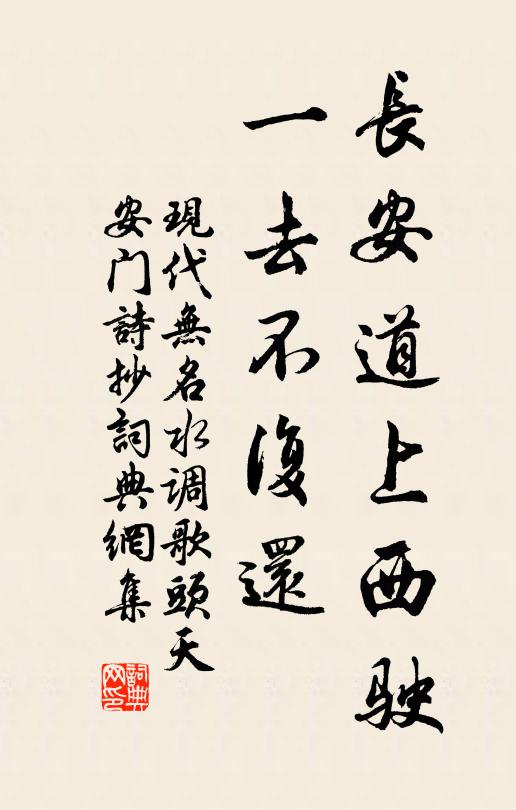 長安道上西駛
一去不復還
現代無名水调歌頭天
安门詩抄詞典網集
詞典网印